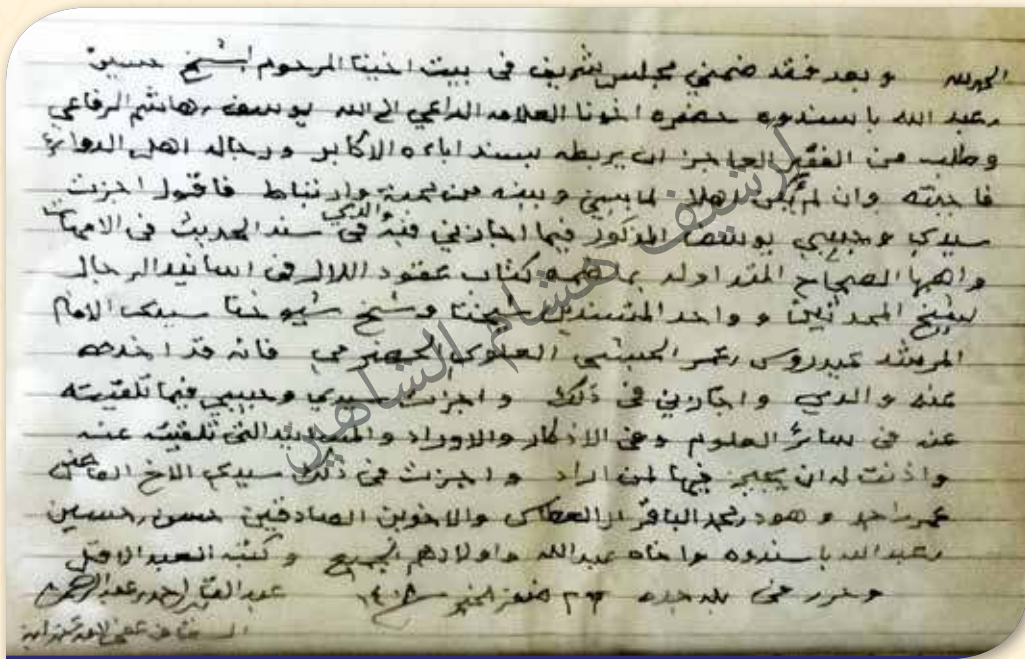 الحمد لله وبعد فقد ضمني مجلس شريف في بيت اخينا المرحوم الشيخ حسين
بن عبد الله باسندوه حضره اخونا العلامه الداعي الى الله يوسف بن هاشم الرفاعي
وطلب من الفقير العاجز ان يربطه بسند اباءه الاكابر ورجاله اهل الدوائر
فاجبته وان لم أكن اهلا لما بيني وبينه من محبة وارتباط فاقول اجزت
سيدي وحبيبي يوسف المذكور فيما اجازني فيه والدي في سند الحديث في الامهات
واهمها الصحاح المتداولة بما ضمه كتاب عقود اللال في اسانيد الرجال
لشيخ المحدثين وواحد المسندين شيخنا وشيخ شيوخنا سيدي الامام
المرشد عيدروس بن عمر الحبشي العلوي الحضرمي فانه قد اخذه
عنه والدي واجازني في ذلك واجزت سيدي وحبيبي فيما تلقيته
عنه في سائر العلوم وفي الاذكار والاوراد والمسانيد التي تلقيته عنه
واذنت له ان يجيز فيها لمن اراد واجزت في ذلك سيدي الاخ الفاضل
عمر احمد وهود بن محمد الباقر العطاس والاخوين الصادقين حسن بن حسين
بن عبدالله باسندوه واخاه عبدالله واولادهم الجميع وكتبه العبد الاقل
وحرر في بلد جده صفر الخير عبد القادر بن احمد بن عبدالرحمن
السقاف عفى الله عنه
ارشيف هشام الشاهين